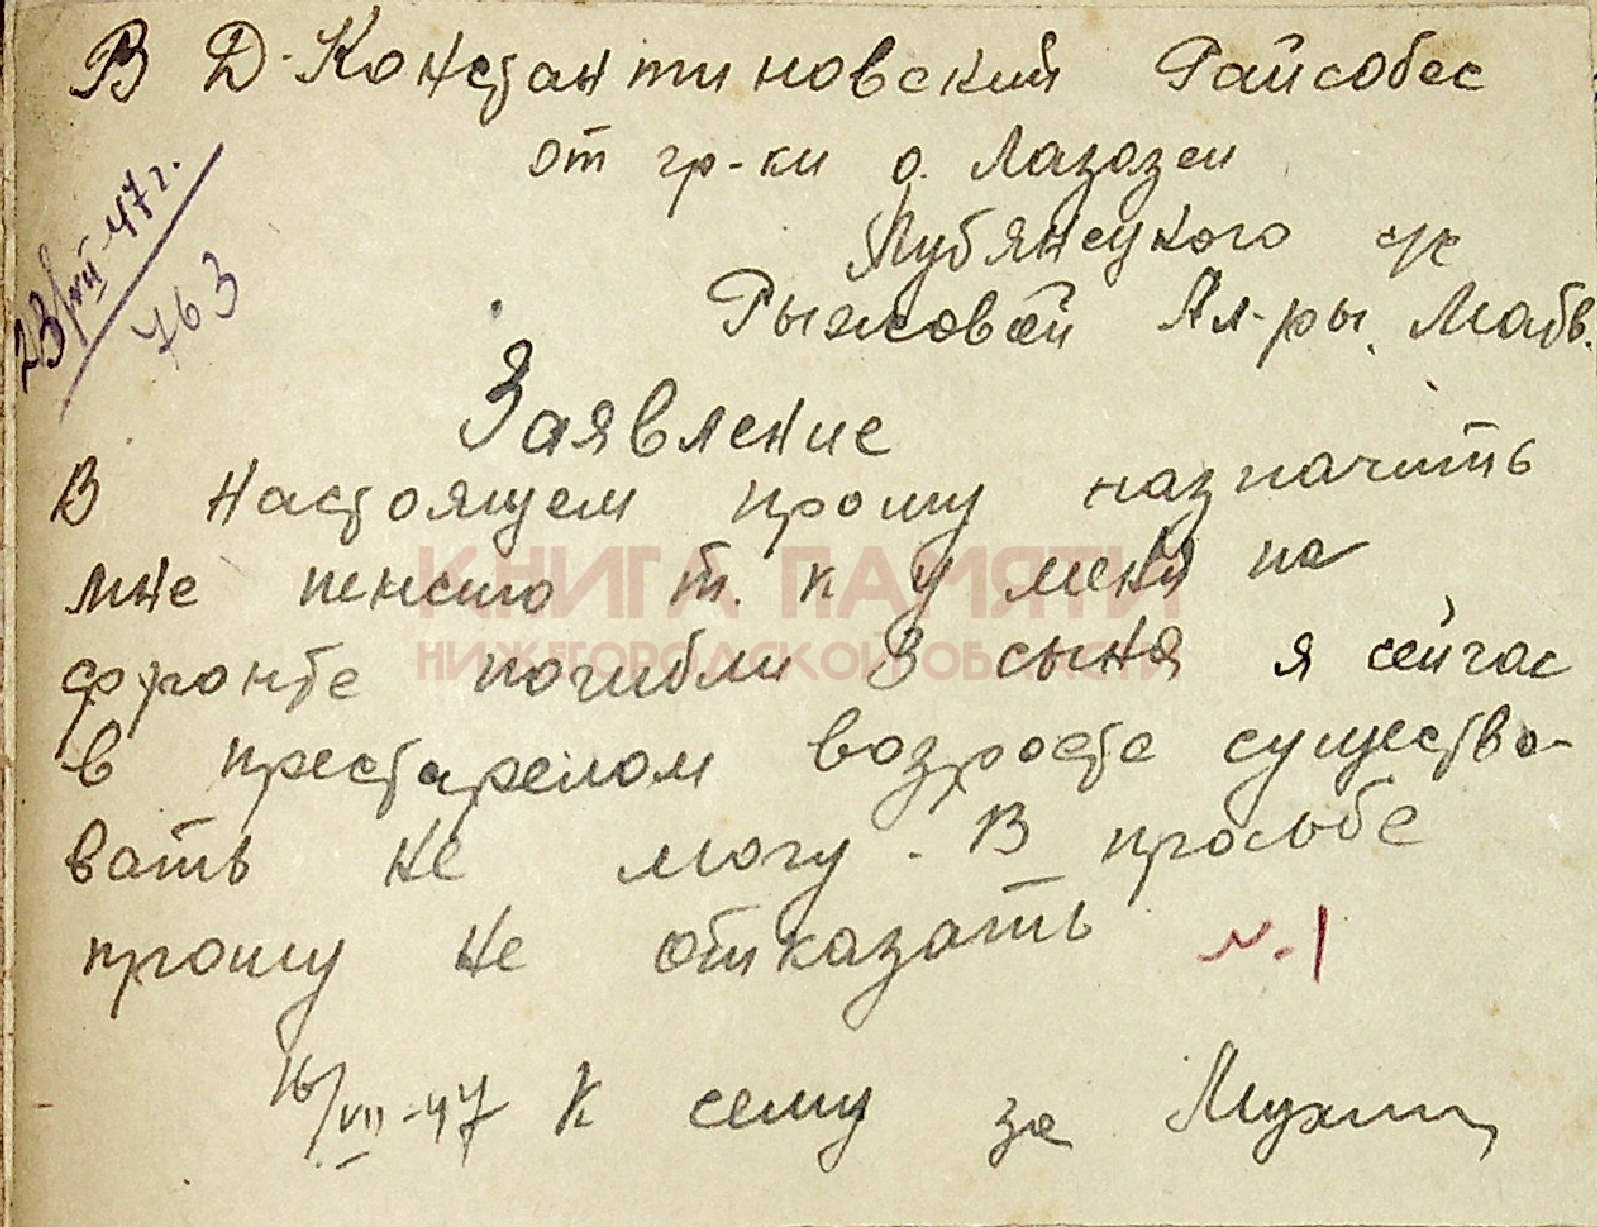 В Д-Константиновский Райсобес
от гр-ки д. Лазазеи
Лубянецкого с/с
Рыжовой Ал-ры. Матв.
23/VII-47 г.
763
Заявление
В настоящем прошу назначить
мне пенсию т. к у меня на
фронте погибли 3 сына я сейчас
в престарелом возросте существо-
вать не могу. В прозьбе
прошу не отказать
N.1
16/VII-47 К сему за
КНИГА ПАМЯТИ
НИЖЕГОРОДСКОЙ ОБЛАСТИ